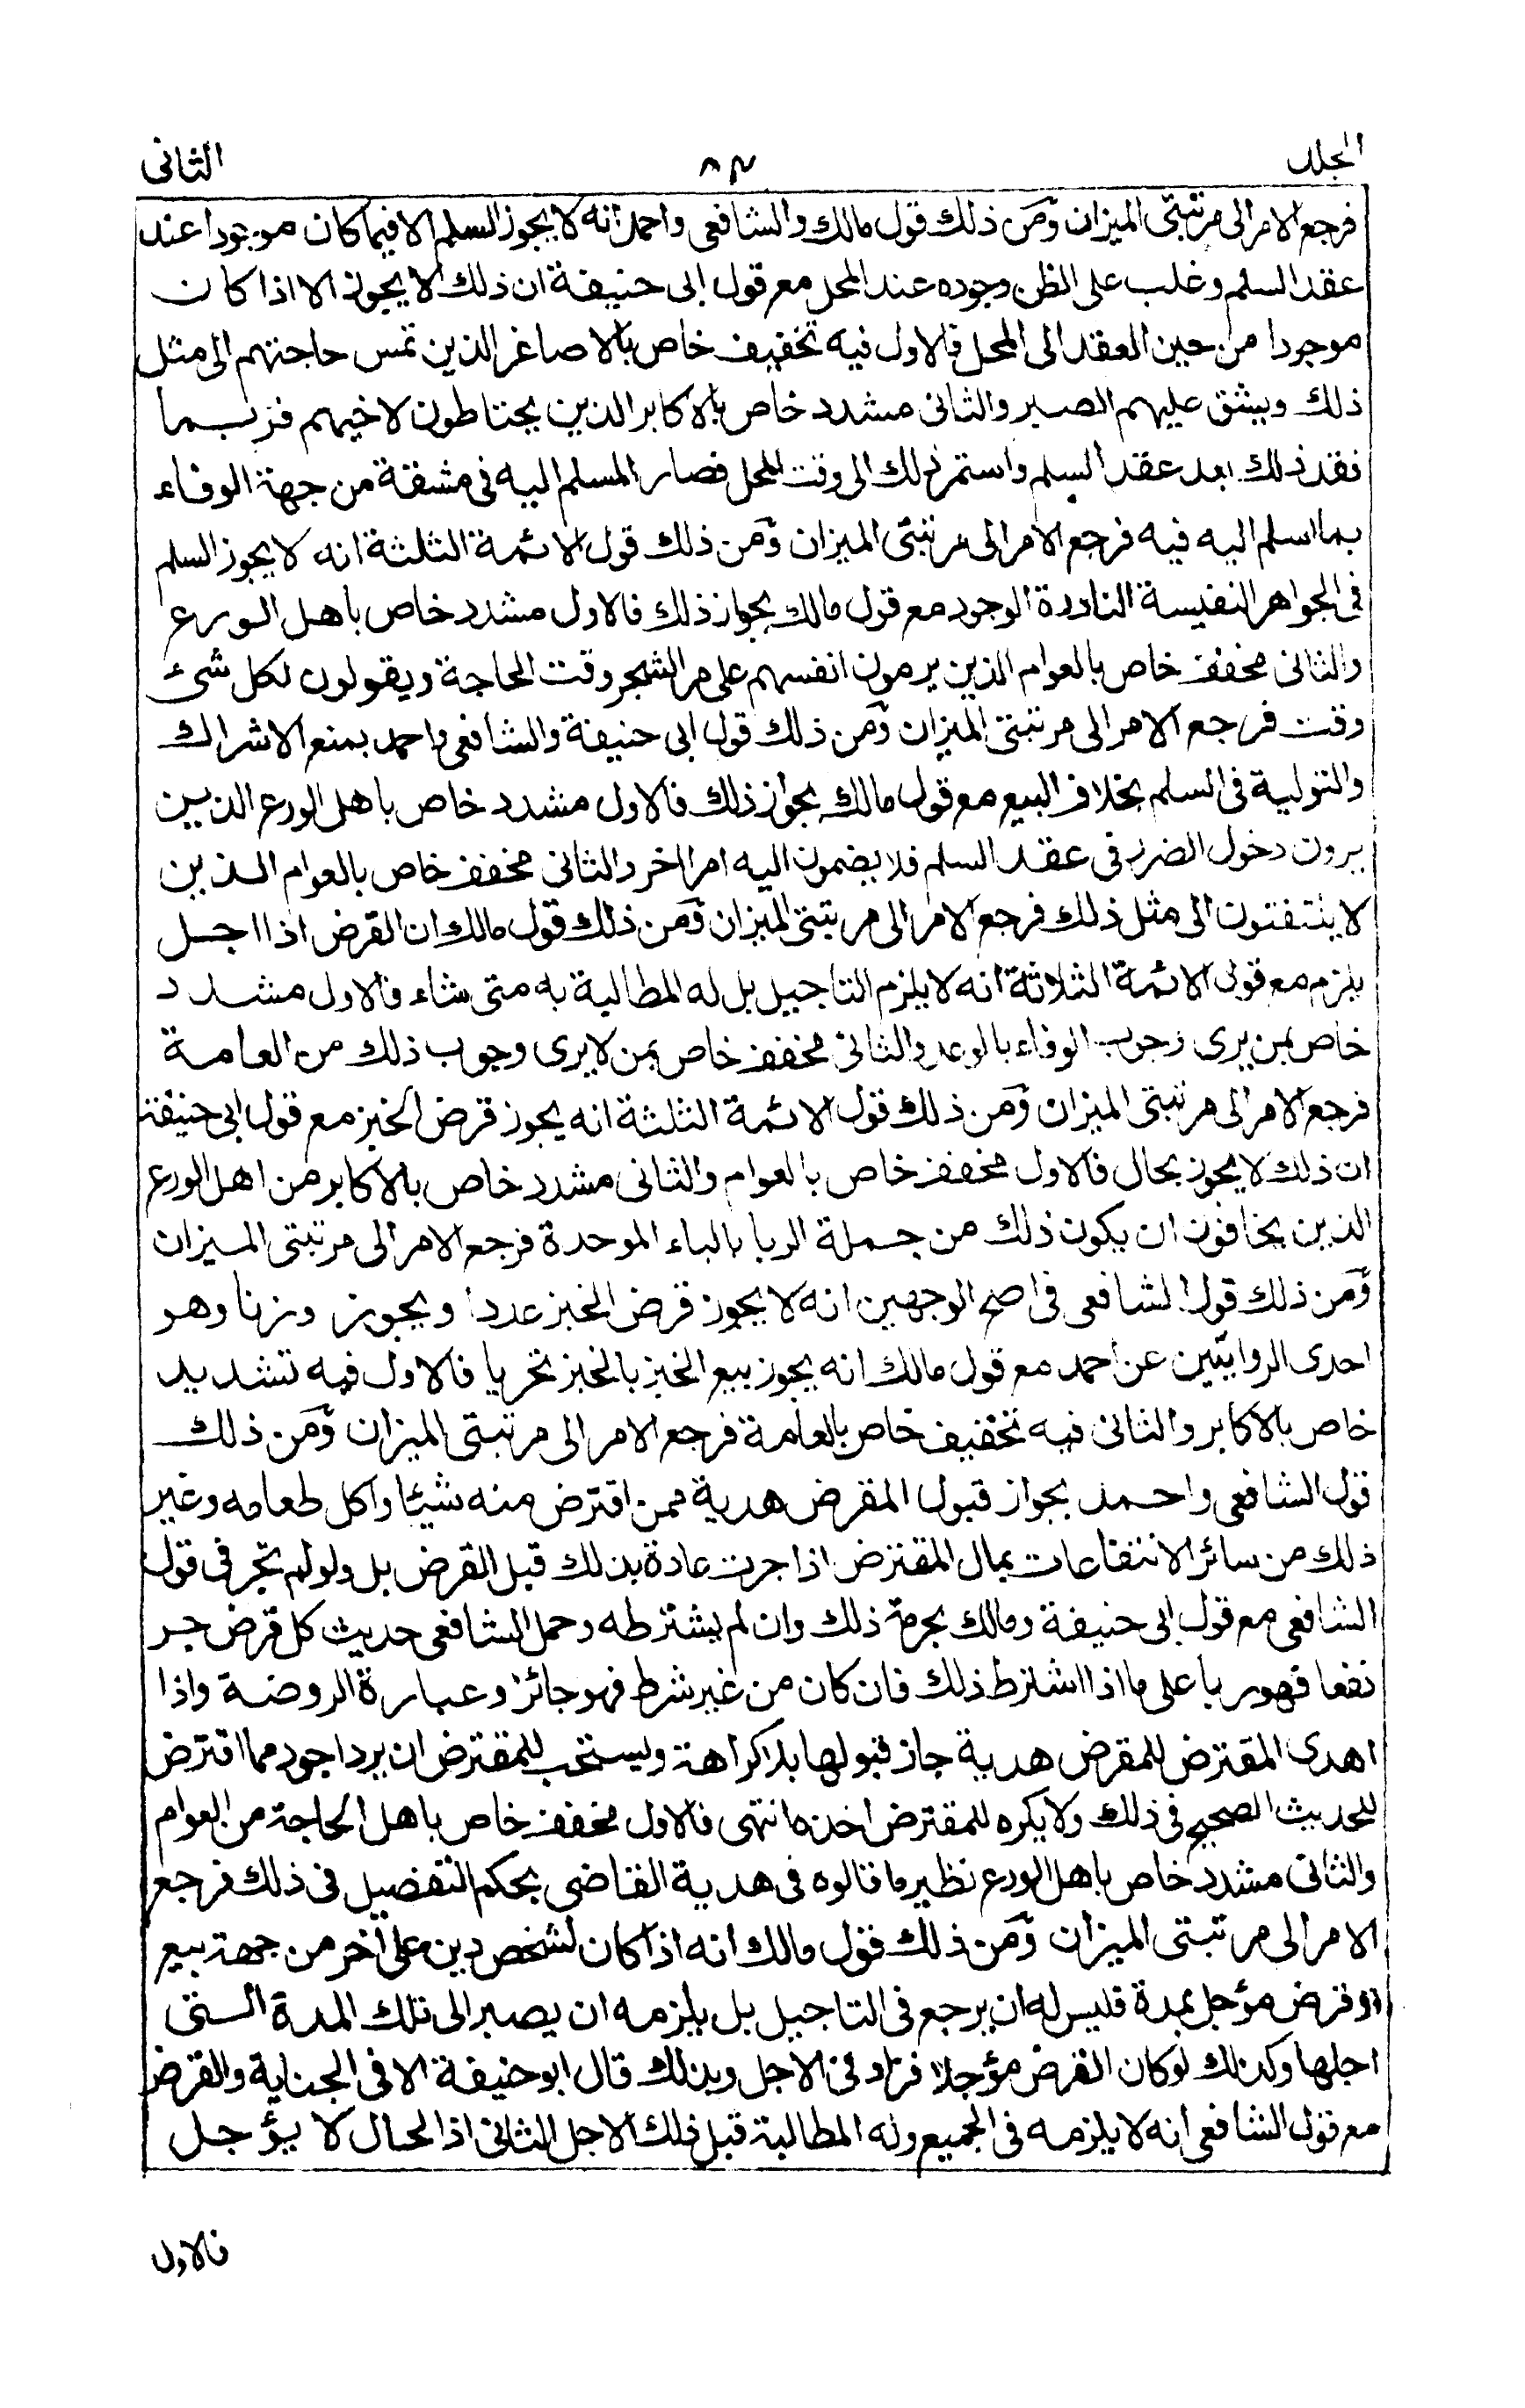 المجلد ٨٢ الثانى
فرجع الامر الى مرتبتى الميزان ومن ذلك قول مالك والشافعى واحمد انه لا يجوز السلم الا فيما كان موجودا عند
عقد السلم وغلب على الظن وجوده عند المحل مع قول ابى حنيفة ان ذلك لا يجوز الا اذا كان
موجودا من حين العقد الى المحل فالاول فيه تخفيف خاص بالاصاغر الذين تمس حاجتهم الى مثل
ذلك ويشق عليهم الصبر والثانى مشدد خاص بالاكابر الذين يحتاطون لاخيهم فربما
فقد ذلك بعد عقد السلم واستمر ذلك الى وقت المحل فصار المسلم اليه فى مشقة من جهة الوفاء
بما اسلم اليه فيه فرجع الامر الى مرتبتى الميزان ومن ذلك قول الائمة الثلثة انه لا يجوز السلم
فى الجواهر النفيسة النادرة الوجود مع قول مالك بجواز ذلك فالاول مشدد خاص باهل الورع
والثانى مخفف خاص بالعوام الذين يرمون انفسهم على مر الشجر وقت الحاجة ويقولون لكل شئ
وقت فرجع الامر الى مرتبتى الميزان ومن ذلك قول ابى حنيفة والشافعى واحمد بمنع الاشراك
والتولية فى السلم بخلاف البيع مع قول مالك بجواز ذلك فالاول مشدد خاص باهل الورع الذين
يرون دخول الضرر فى عقد السلم فلا يضمون اليه امرا اخر والثانى مخفف خاص بالعوام الذين
لا يلتفتون الى مثل ذلك فرجع الامر الى مرتبتى الميزان ومن ذلك قول مالك ان القرض اذا اجل
يلزم مع قول الائمة الثلاثة انه لا يلزم التاجيل بل له المطالبة به متى شاء فالاول مشدد
خاص بمن يرى وجوب الوفاء بالوعد والثانى مخفف خاص بمن لا يرى وجوب ذلك من العامة
فرجع الامر الى مرتبتى الميزان ومن ذلك قول الائمة الثلثة انه يجوز قرض الخبز مع قول ابى حنيفة
ان ذلك لا يجوز بحال فالاول مخفف خاص بالعوام والثانى مشدد خاص بالاكابر من اهل الورع
الذين يخافون ان يكون ذلك من جملة الربا بالباء الموحدة فرجع الامر الى مرتبتى الميزان
ومن ذلك قول الشافعى فى اصح الوجهين انه لا يجوز قرض الخبز عددا ويجوز وزنا وهو
احدى الروايتين عن احمد مع قول مالك انه يجوز بيع الخبز بالخبز تحريا فالاول فيه تشديد
خاص بالاكابر والثانى فيه تخفيف خاص بالعامة فرجع الامر الى مرتبتى الميزان ومن ذلك
قول الشافعى واحمد بجواز قبول المقرض هدية ممن اقترض منه شيئا واكل طعامه وغير
ذلك من سائر الانتفاعات بمال المقترض اذا جرت عادة بذلك قبل القرض بل ولو لم تجر فى قول
الشافعى مع قول ابى حنيفة ومالك بحرمة ذلك وان لم يشترطه وحمل الشافعى حديث كل قرض جر
نفعا فهو ربا على ما اذا اشترط ذلك فان كان من غير شرط فهو جائز وعبارة الروضة واذا
اهدى المقترض للمقرض هدية جاز قبولها بلا كراهة ويستحب للمقترض ان يرد اجود مما اقترض
للحديث الصحيح فى ذلك ولا يكره للمقترض اخذه انتهى فالاول مخفف خاص باهل الحاجة من العوام
والثانى مشدد خاص باهل الورع نظير ما قالوه فى هدية القاضى بحكم التفصيل فى ذلك فرجع
الامر الى مرتبتى الميزان ومن ذلك قول مالك انه اذا كان لشخص دين على آخر من جهة بيع
او قرض مؤجل بمدة فليس له ان يرجع فى التاجيل بل يلزمه ان يصبر الى تلك المدة التى
اجلها وكذلك لو كان القرض مؤجلا فزاد فى الاجل وبذلك قال ابو حنيفة الا فى الجناية والقرض
مع قول الشافعى انه لا يلزمه فى الجميع وله المطالبة قبل ذلك الاجل الثانى اذ الحال لا يؤجل
فالاول